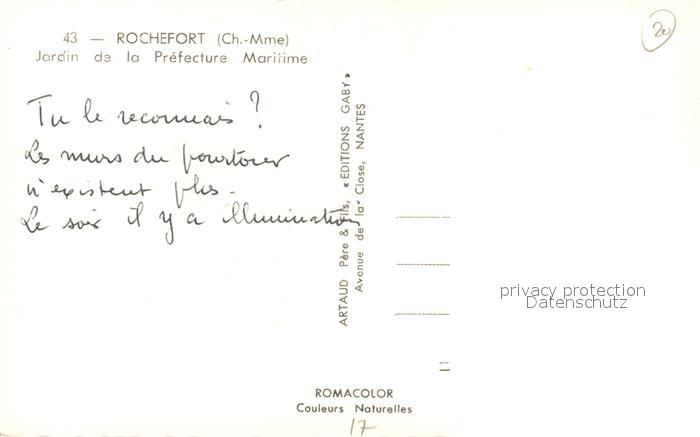 43 — ROCHEFORT (Ch.-Mme)
Jardin de la Préfecture Maritime
20
Tu le reconnais ?
Les murs du pourtour
n'existent plus.
Le soir il y a illumination
ARTAUD Père & Fils, « EDITIONS GABY »
Avenue de la Close, NANTES
privacy protection
Datenschutz
ROMACOLOR
Couleurs Naturelles
17